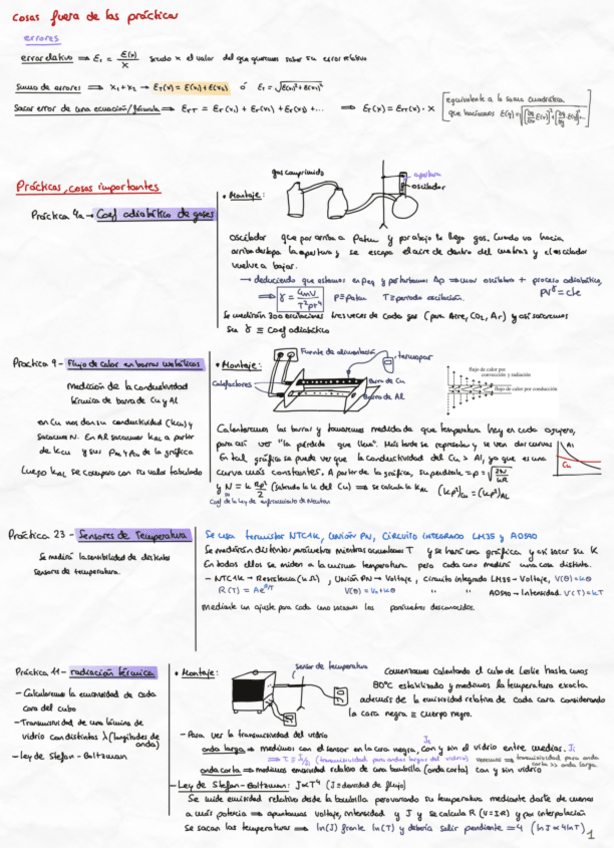 cosas fuera de las prácticas
errores
error relativo ⇒ Er = E(x)/x siendo x el valor del que queremos saber su error relativo
Suma de errores ⇒ x1+x2 → ET(x) = E(x1)+E(x2) ó ET = √E(x1)²+E(x2)²
Sacar error de una ecuación/fórmula ⇒ ErT = Er(x1) + Er(x2) + Er(x3) + ... ⇒ ET(x) = ErT(x) · x
equivalente a la suma cuadrática
que hacíamos
Prácticas, cosas importantes
Práctica 4a → Coef adiabático de gases
• Montaje:
gas comprimido
apertura
oscilador
oscilador que por arriba a Patm y por abajo le llega gas. Cuando va hacia
arriba destapa la apertura y se escapa el aire de dentro del matraz y el oscilador
vuelve a bajar.
→ deduciendo que estamos en Peq y perturbamos Δp ⇒ oscilatorio + proceso adiabático,
⇒ γ = 4mV/T²pr⁴ P=Patm T≡período oscilación. PVᵞ = cte
Se medirán 300 oscilaciones tres veces de cada gas (para Aire, CO2, Ar) y así sacaremos
su γ ≡ Coef adiabático
Práctica 9 - Flujo de calor en barras metálicas
medición de la conductividad
térmica de barra de Cu y Al
en Cu nos dan su conductividad (kCu) y
sacamos N. En Al sacamos kAL a partir
de kCu y sus PCu y PAL de la gráfica
Luego kAL se compara con su valor tabulado
• Montaje:
Fuente de alimentación
termopar
Calefactores
Barra de Cu
Barra de Al
flujo de calor por
convección y radiación
flujo de calor por conducción
Calentaremos las barras y tomaremos medida de que temperatura hay en cada agujero,
para así ver "la pérdida que lleva". Más tarde se representa y se ven dos curvas
En tal gráfica se puede ver que la conductividad del Cu > Al, ya que es una
curva más constantes. A partir de la gráfica, su pendiente = p = √2N/kR
y N = k Rp²/2 (sabiendo la k del Cu) ⇒ se calcula la kAL (kp²)Cu = (kp²)AL
Coef de la ley de enfriamiento de Newton
Al
Cu
Práctica 23 - Sensores de Temperatura
Se medirá la sensibilidad de distintos
sensores de temperatura.
Se usa termistor NTC1K, unión PN, circuito integrado LM35 y AD590
Se medirán distintos parámetros mientras aumentamos T y se hará una gráfica y así sacar su K
En todos ellos se miden a la misma temperatura pero cada uno medirá una cosa distinta.
- NTC1K → Resistencia (kΩ), Unión PN → Voltaje, circuito integrado LM35 - Voltaje, V(θ)=kθ
R(T) = Ae^B/T V(θ) = V0+kθ " " AD590 - Intensidad. V(T)=kT
Mediante un ajuste para cada uno sacamos los parámetros desconocidos.
Práctica 11 - radiación térmica
- Calcularemos la emisividad de cada
cara del cubo
- Transmisividad de una lámina de
vidrio con distintos λ (longitudes de
onda)
- ley de Stefan-Boltzmann
• Montaje:
sensor de temperatura
Comenzamos calentando el cubo de Leslie hasta unos
80°C estabilizado y medimos la temperatura exacta
además de la emisividad relativa de cada cara considerando
la cara negra ≡ cuerpo negro.
- Para ver la transmisividad del vidrio
onda larga ⇒ medimos con el sensor en la cara negra, con y sin el vidrio entre medias.
(transmisividad para ondas largas del vidrio) veremos ⇒ transmisividad para onda
corta >> onda larga.
onda corta ⇒ medimos emisividad relativa de una bombilla (onda corta) con y sin vidrio
- Ley de Stefan-Boltzmann: J∝T⁴ (J≡densidad de flujo)
Se mide emisividad relativa desde la bombilla pero variando su temperatura mediante darle de menos
a más potencia ⇒ apuntamos voltaje, intensidad y J y se calcula R (V=IR) y por interpolación
Se sacan las temperaturas ⇒ ln(J) frente ln(T) y debería salir pendiente = 4 (ln J ∝ 4lnT)
1